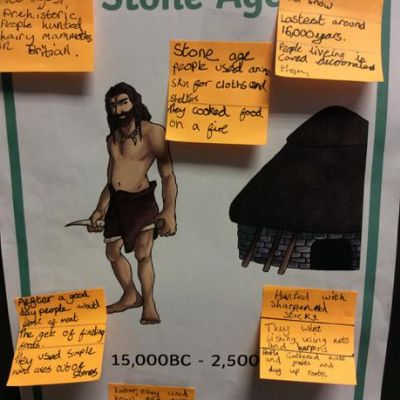 Stone Age
Prehistoric
People hunted
hairy mammoths
in Britian.
know
Lastest around
15,000 years.
People liveing in
caved decorated
them
Stone age
people used anim
skin for cloths and
shelters
They cooked food
on a fire
After a good
day people would
feast of meat
The get of finding
foods.
They used simple
hand axes out of stones
Hunted with
sharpened
sticks
They went
fishing using nets
and harpins
People Gathered nuts
and fruits and
dug up roots.
15,000BC - 2,500
Later, they used